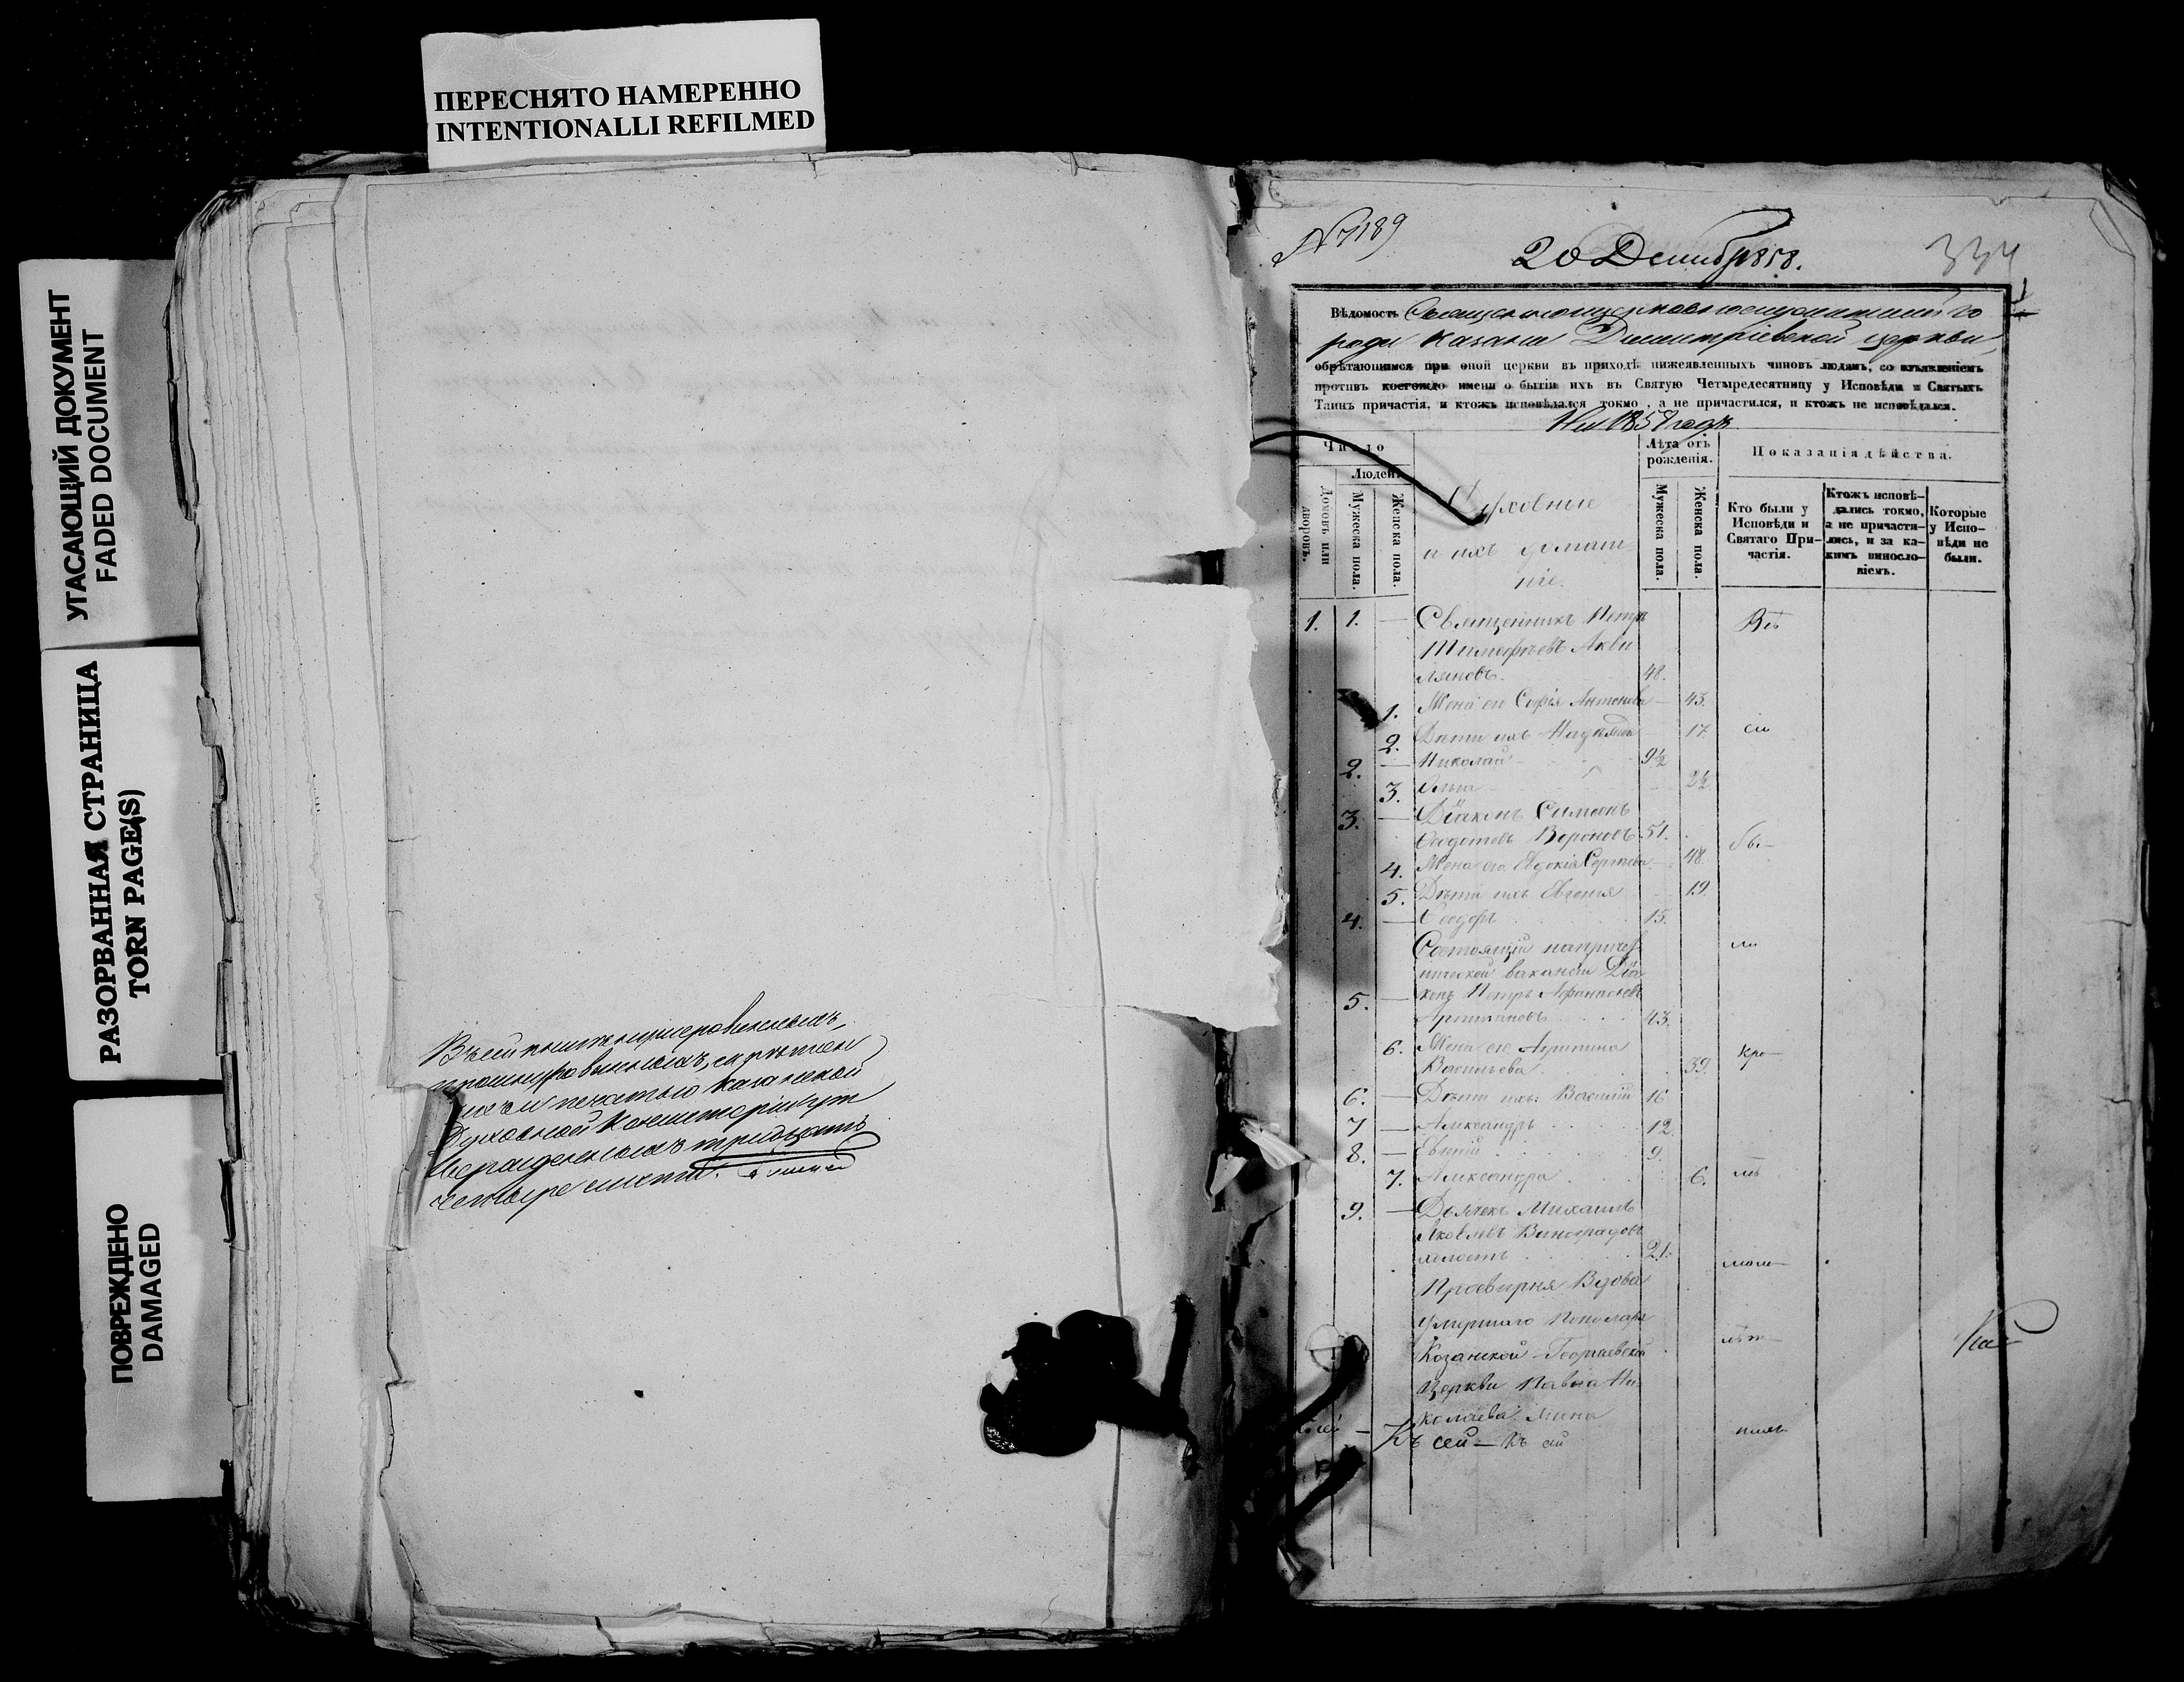 ПЕРЕСНЯТО НАМЕРЕННО
INTENTIONALLI REFILMED
УГАСАЮЩИЙ ДОКУМЕНТ
FADED DOCUMENT
РАЗОРВАННАЯ СТРАНИЦА
TORN PAGE(S)
ПОВРЕЖДЕНО
DAMAGED
прошнурованныхъ, скрепленныхъ
печатью Казанской
Духовной Консисторіи
тридцать
четыре листа.
№ 7189
20 Декабря 1858.
334
1
Вѣдомость Священноцерковнослужителей го
рода Казани Димитріевской церкви,
обрѣтающимся при оной церкви въ приходѣ нижеявленныхъ чиновъ людямъ, со изъявленіемъ
противъ коегождо имени о бытіи ихъ въ Святую Четыредесятницу у Исповѣди и Святыхъ
Таинъ причастія, и ктожъ исповѣдался токмо, а не причастился, и ктожъ не исповѣдался.
На 1858 годъ.
Число
Людей.
Домовъ или дворовъ.
Мужеска пола.
Женска пола.
Духовные
и ихъ домаш-
ніе.
Лѣта отъ рожденія.
Мужеска пола.
Женска пола.
Показанія дѣйства.
Кто были у Исповѣди и Святаго При-частія.
Ктожъ исповѣ-дались токмо, а не причасти-лись, и за ка-кимъ винословіемъ.
Которые у Испо-вѣди не были.
1. 1. — Священникъ Петръ
Тимофеевъ Акви
ляновъ. 48.
1. Жена его Софія Антонова — 43.
2. Дѣти ихъ Надежда 17
2. — Николай 9½
3. Ольга 2½
3. — Діаконъ Симеонъ
Ѳедотовъ Вороновъ 51.
4. Жена его Евдокія Сергеева — 48
5. Дѣти ихъ Евгенія 19.
4. — Ѳеодоръ 15.
Состоящій на причет
нической вакансіи Діа
5. — конъ Петръ Афанасьевъ
43.
6. Жена его Агрипина
Васильева 39.
6. — Дѣти ихъ: Василій 16
7 — Александръ 12
8. — 9.
7. Александра 6.
9. — Дьячекъ Михаилъ
Яковлевъ Виноградовъ
холостъ 21.
Просвирня Вдова
умершаго Пономаря
Казанской Георгіевской
Церкви Павла Ни-
колаева
Къ сей — Къ сей